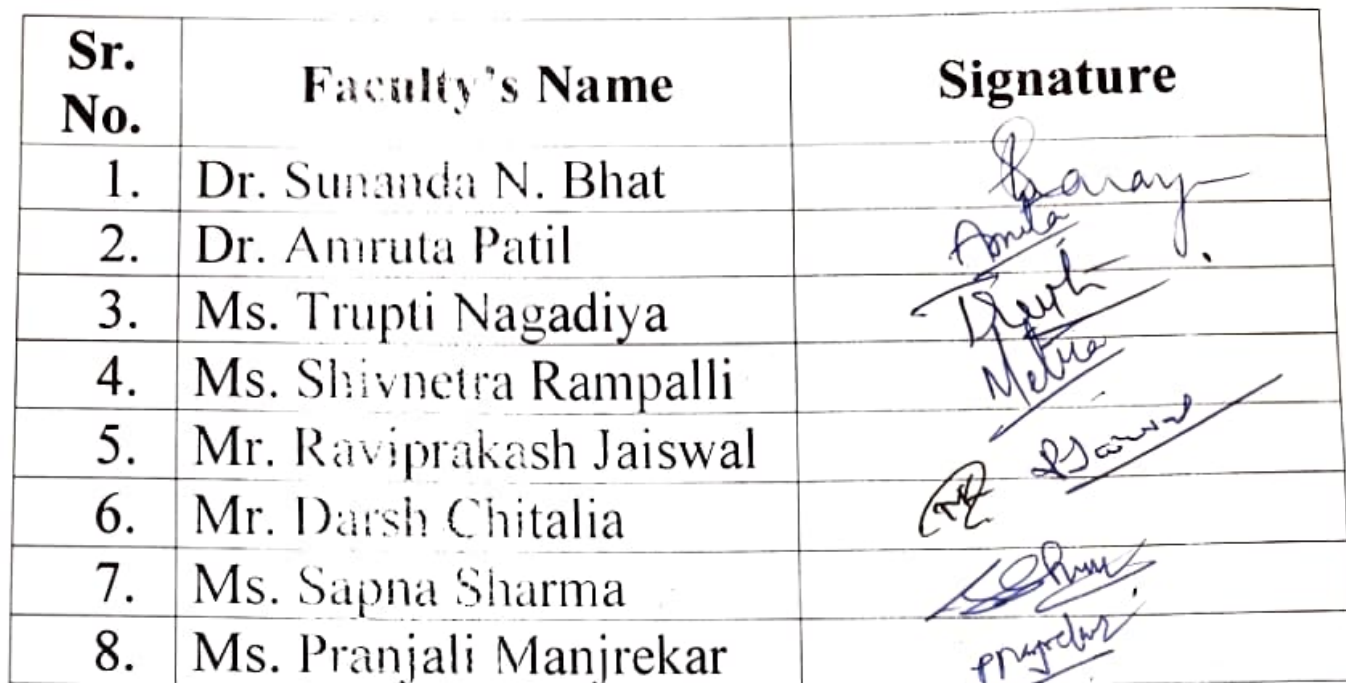 Sr. No. Faculty's Name Signature
1. Dr. Sunanda N. Bhat
2. Dr. Amruta Patil
3. Ms. Trupti Nagadiya
4. Ms. Shivnetra Rampalli
5. Mr. Raviprakash Jaiswal
6. Mr. Darsh Chitalia
7. Ms. Sapna Sharma
8. Ms. Pranjali Manjrekar